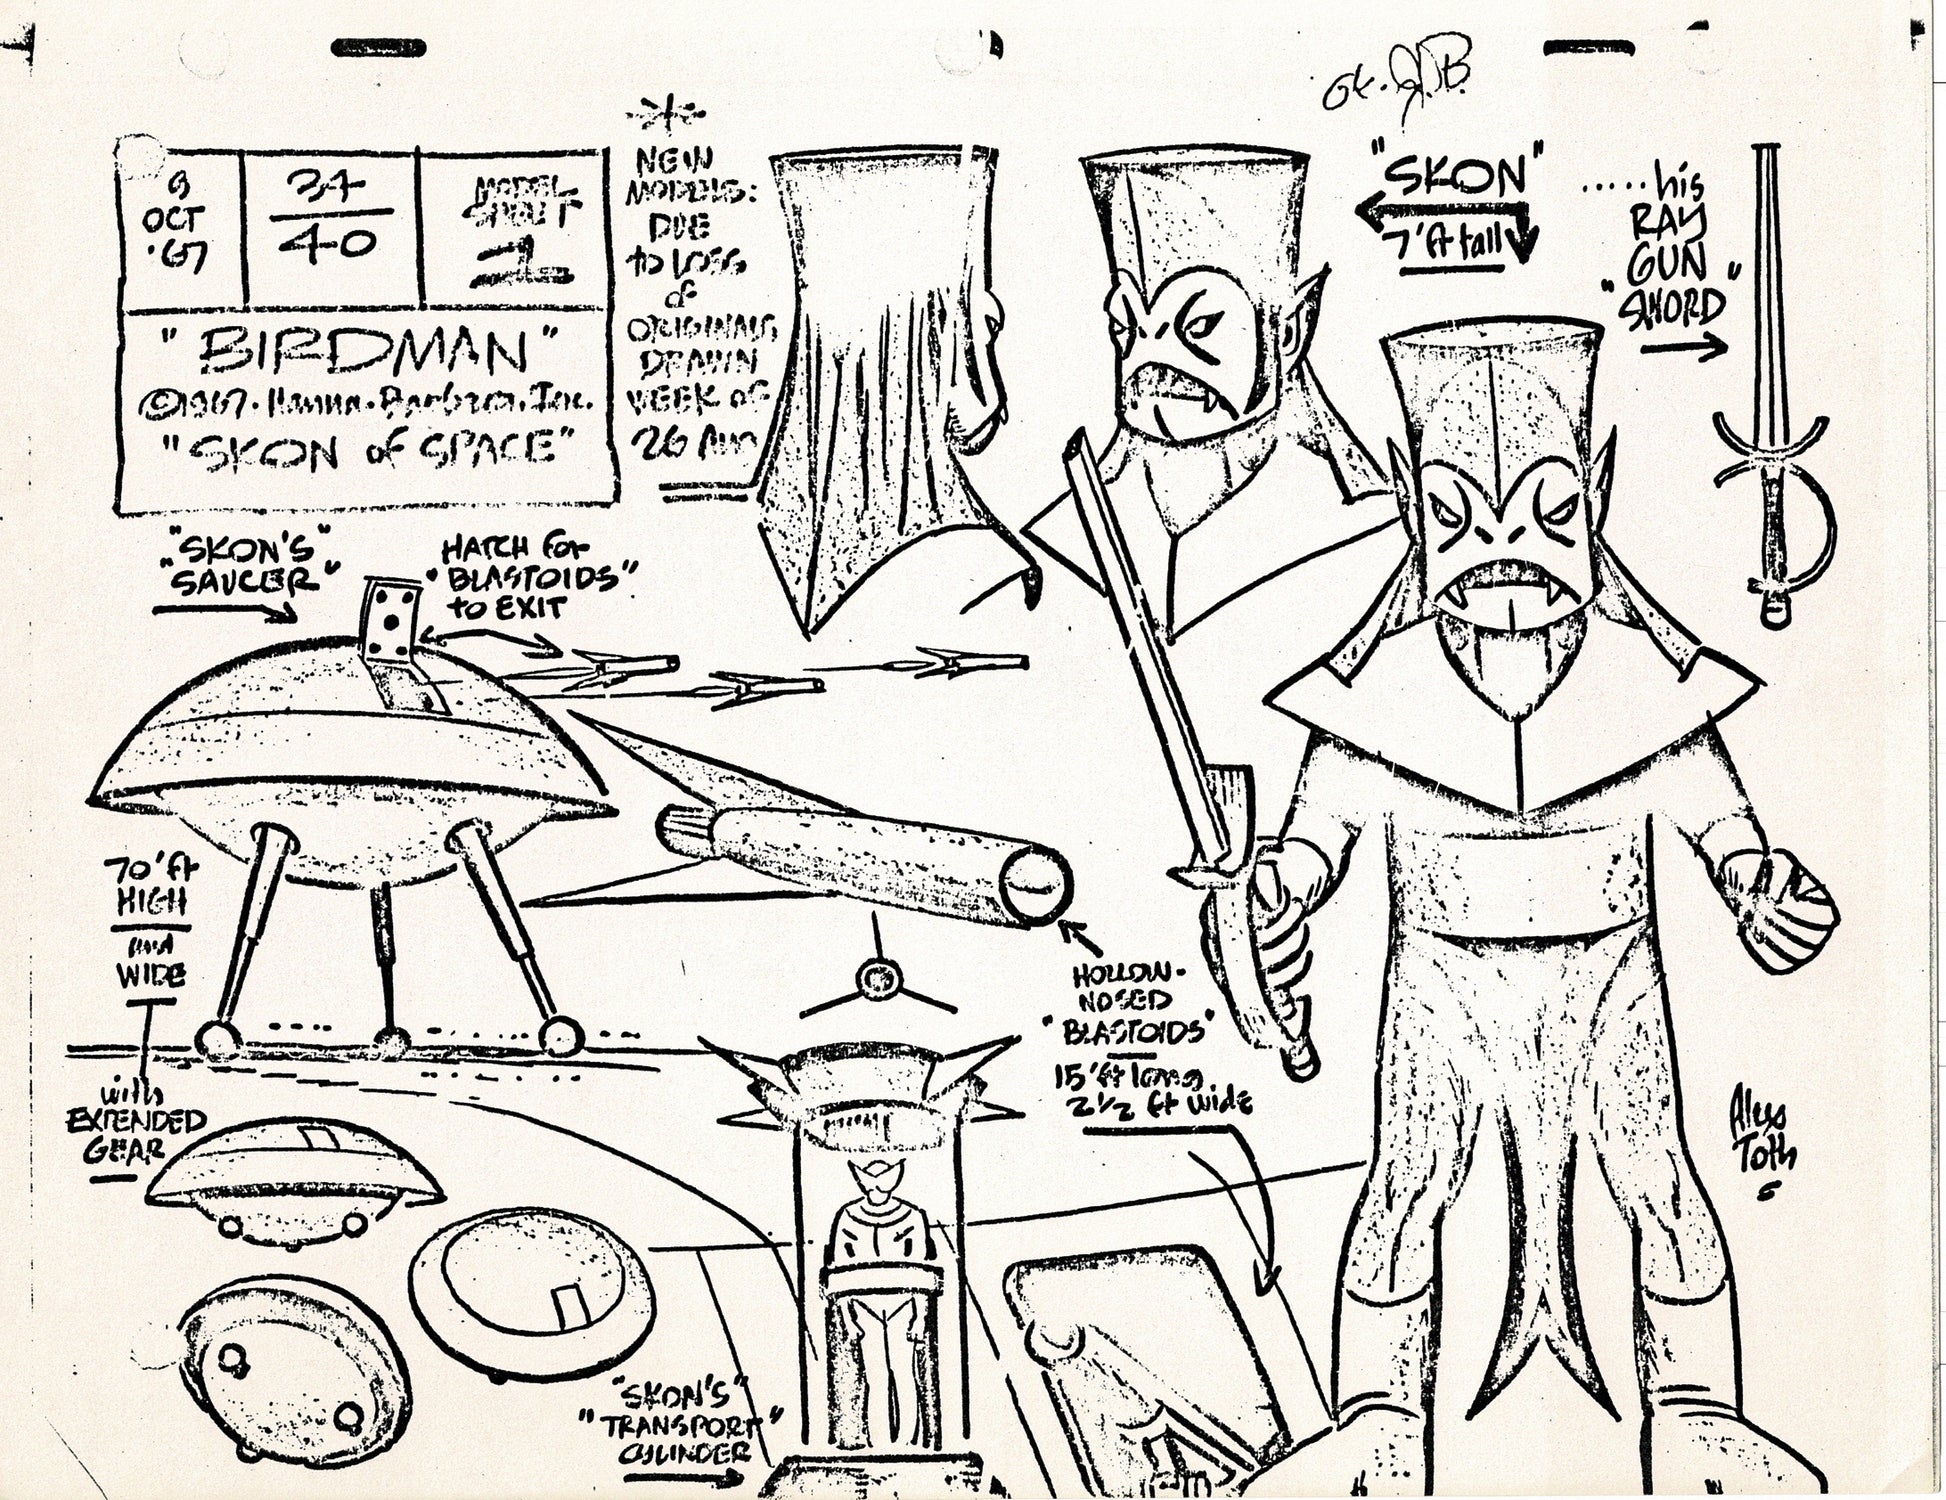 OK. J.B.
9
OCT
'67
34
40
MODEL
SHEET
1
"BIRDMAN"
©1967. Hanna-Barbera, Inc.
"SKON of SPACE"
*
NEW
MODELS:
DUE
to LOSS
of
ORIGINALS
DRAWN
WEEK OF
26 AUG
"SKON"
7'ft tall
.....his
RAY
GUN
"SWORD"
"SKON'S
SAUCER"
HATCH for
"BLASTOIDS"
to EXIT
70'ft
HIGH
and
WIDE
with
EXTENDED
GEAR
HOLLOW-
NOSED
"BLASTOIDS"
15'ft long
2½ ft wide
"SKON'S"
"TRANSPORT"
CYLINDER
Alex
Toth